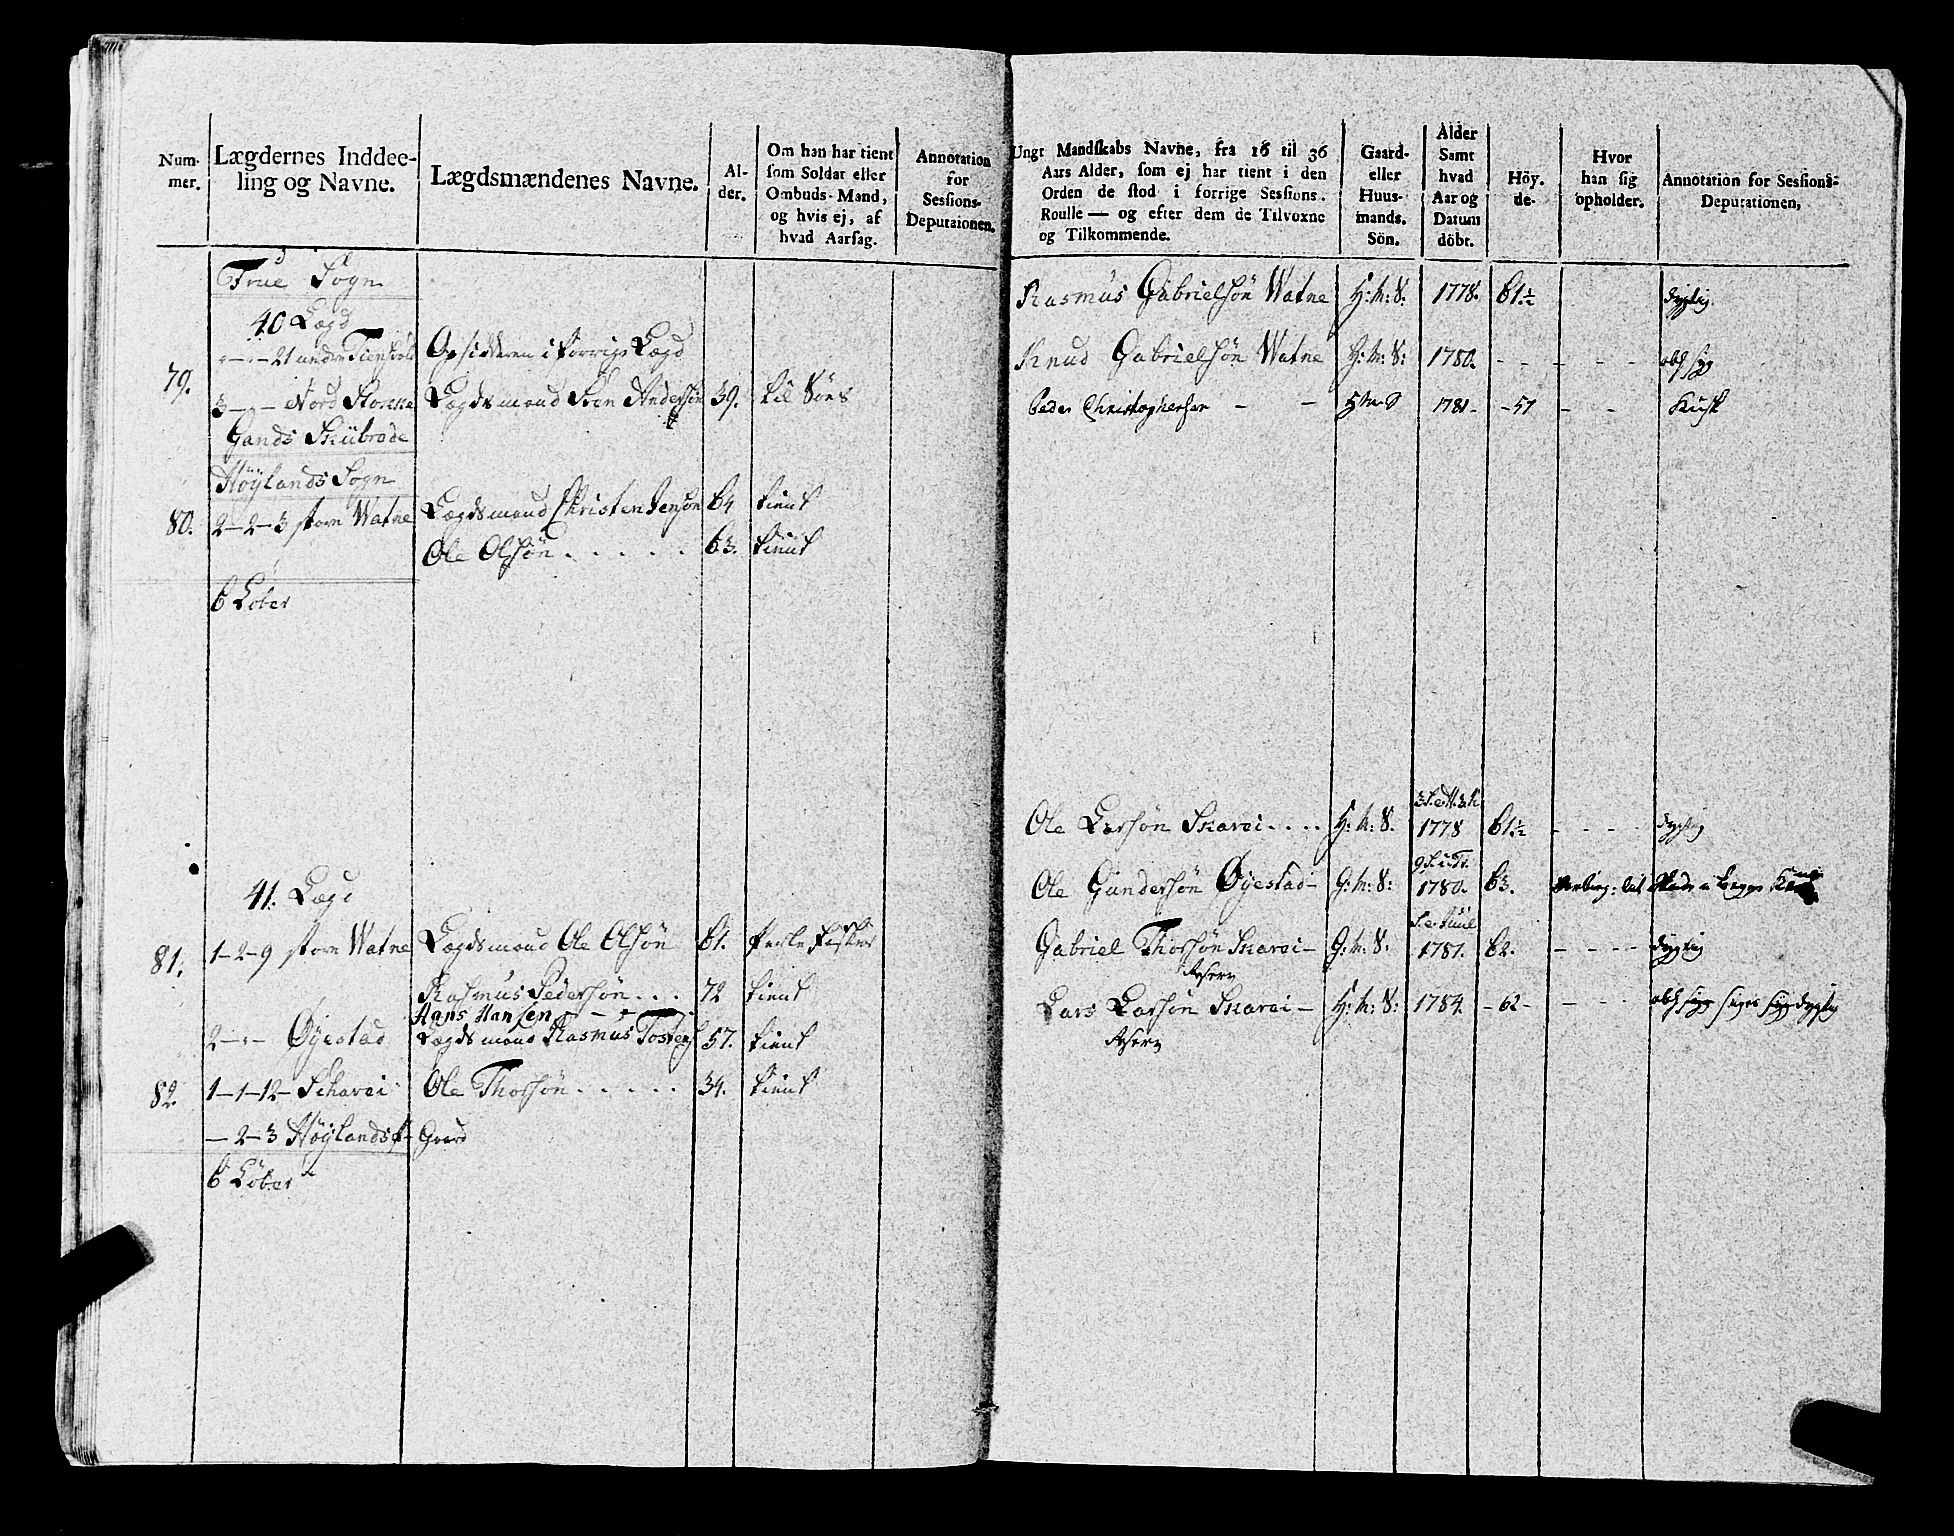 Num-
mer.
Lægdernes Inddee-
ling og Navne.
Lægdsmændenes Navne.
Al-
der.
Om han har tient
som Soldat eller
Ombuds-Mand,
og hvis ej, af
hvad Aarsag.
Annotation
for
Sessions-
Deputaionen.
True Sogn
40 Lægd
79.
21 under
Opsidderen i forrige Lægd
3 - " - Nord Stokke
Lægdsmand Sven Andersøn 39.
Gands Skibrode
Höÿlands Sogn
80. 2-2-3 storn Watne Lægdsmand Christen Jensøn 64 tient
Ole Olsøn . . . . . 63. tient
6 Løber
41. Lægd
81. 1-2-9 storn Watne Lægdsmand Ole Olsøn 61. Perle Fisker
Rasmus Pedersøn . . . 72 tient
Hans Hansen
2 - " - Øyestad Lægdsmand Rasmus Tostens 57. tient
82. 1-1-12- Scharei Ole Thorsøn . . . . . 34. tient
- 2-3 Höÿlands P- Gaard
6 Løber
Ungt Mandskabs Navne, fra 18 til 36
Aars Alder, som ej har tient i den
Orden de stod i forrige Sessions-
Roulle — og efter dem de Tilvoxne
og Tilkommende.
Gaard-
eller
Huus-
mands.
Sön.
Alder
Samt
hvad
Aar og
Datum
döbt.
Höy-
de-
Hvor
han sig
opholder.
Annotation for Sessions-
Deputationen,
Rasmus Gabrielsøn Watne H: m: S: 1778. 61½ dygtig
Knud Gabrielsøn Watne H: m: S: 1780. - - - - -
Peder Christophersen - - H m S 1781 - - 57 - - Kusk
Ole Larsøn Skarei . . . . H: m: S. 1778 61½ - - - - dygtig
Ole Gundersøn Øyestad - G: m: S: 1780. 63.
Gabriel Thorsøn Skarei - G: m: S: 1781. 62. - - - - dygtig
Reserv
Lars Larsøn Skarei - H: m: S: 1784. - 62 - - - -
Reserv